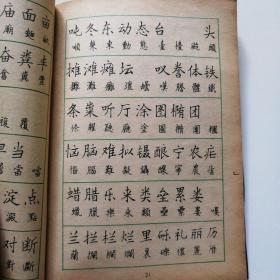 庙面亩
廟麵畝
奋粪丰
奮糞豐
复
複覆
担当
擔當噹
淀点
澱點
对断
對斷
吨冬东动态台 头
噸鼕東動態臺檯颱頭
摊滩瘫坛 叹誊体铁
攤灘癱壇罎嘆謄體鐵
条粜听厅涂图椭团
條糶聽廳塗圖橢團糰
恼脑难拟镊酿宁农疟
惱腦難擬鑷釀寧農瘧
蜡腊乐来类垒累娄
蠟臘樂來類壘纍婁
兰拦栏烂里 砾礼丽历
蘭攔欄爛裏 礫禮麗曆
21